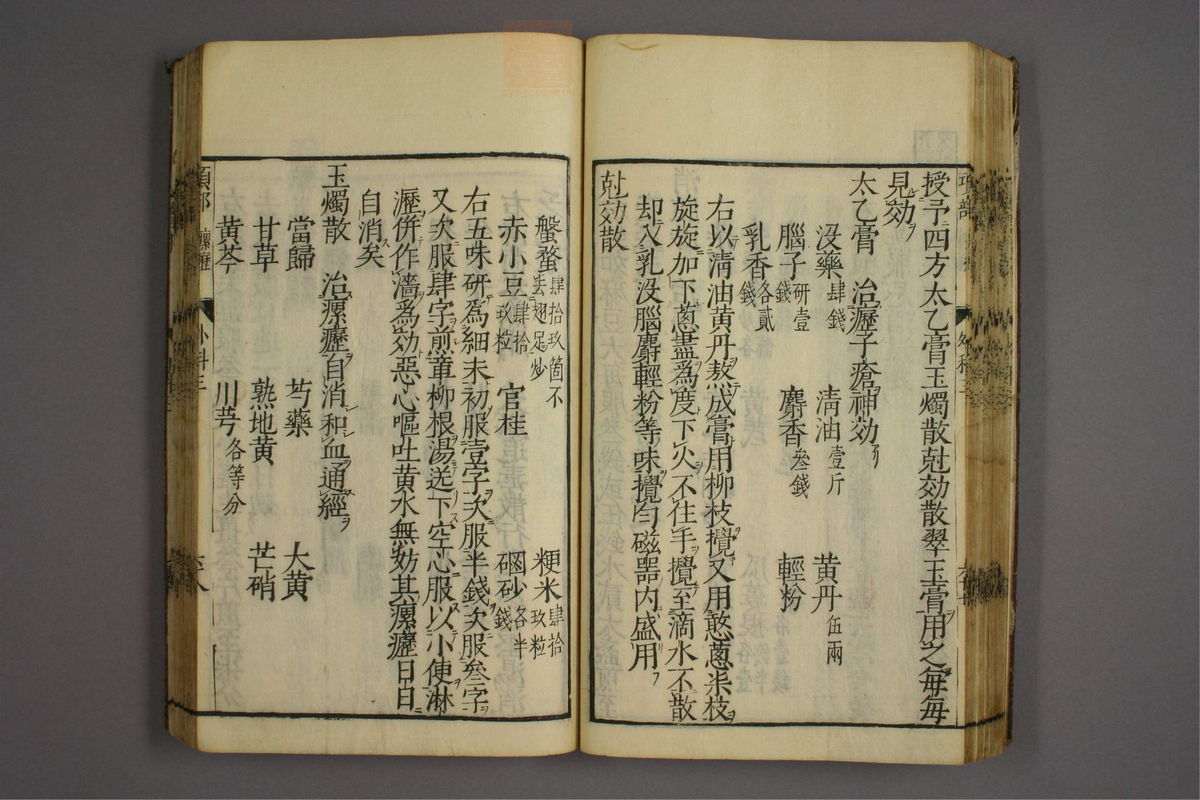 授予四方太乙膏玉燭散尅効散翠玉膏用之毎毎
見効
太乙膏　治癧子瘡神効
沒藥肆錢　清油壹斤　黄丹伍兩
腦子研壹錢　麝香叄錢　輕粉
乳香各貳錢
右以清油黄丹熬成膏用柳枝攪又用憨蔥柒枝
旋旋加下蔥盡爲度下火不住手攪至滴水不散
却入乳沒腦麝輕粉等味攪勻磁器内盛用
尅効散
肆拾玖箇不去翅足炒　粳米肆拾玖粒
赤小豆肆拾玖粒　官桂　硇砂各半錢
右五味研爲細末初服壹字次服半錢次服叄字
又次服肆字煎童柳根湯送下空心服以小便淋
瀝併作濇爲効惡心嘔吐黄水無妨其瘰癧日日
自消矣
玉燭散　治瘰癧自消和血通經
當歸　芍藥　大黄
甘草　熟地黄　芒硝
黄芩　川芎各等分